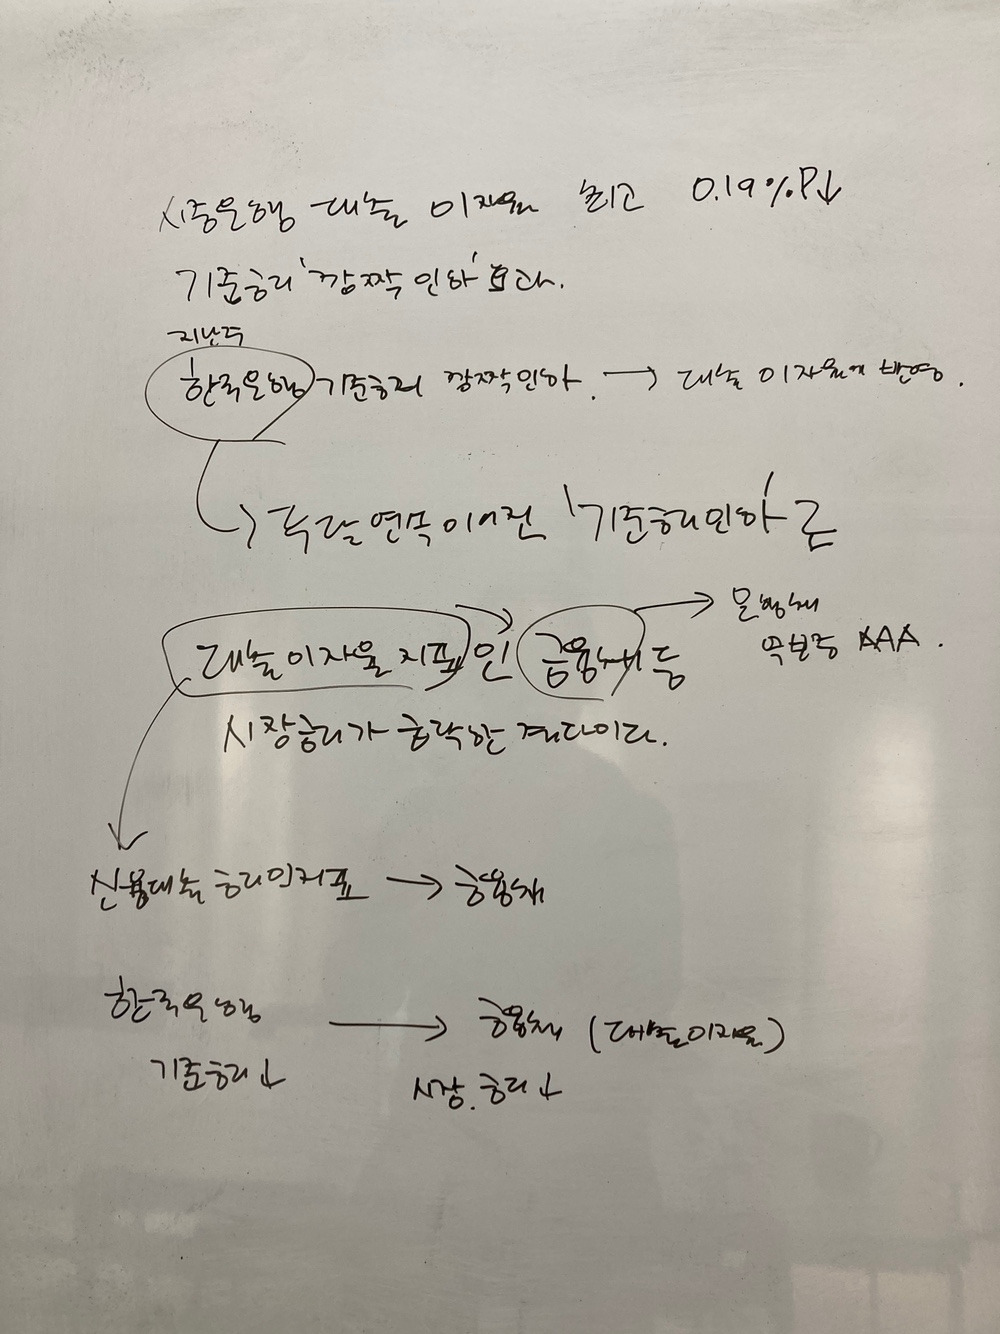 시중은행 대출 이자율 최고 0.19%P↓
기준금리 '깜짝 인하' 효과.
지난주
한국은행 기준금리 깜짝인하. → 대출 이자율에 반영.
두달 연속 이어진 '기준금리인하'로
대출이자율 지표인 금융채 등
→ 은행채
무보증 AAA.
시장금리가 급락한 결과이다.
신용대출 금리의 지표 → 금융채
한국은행 → 금융채 (대출이자율)
기준금리↓ 시장.금리↓